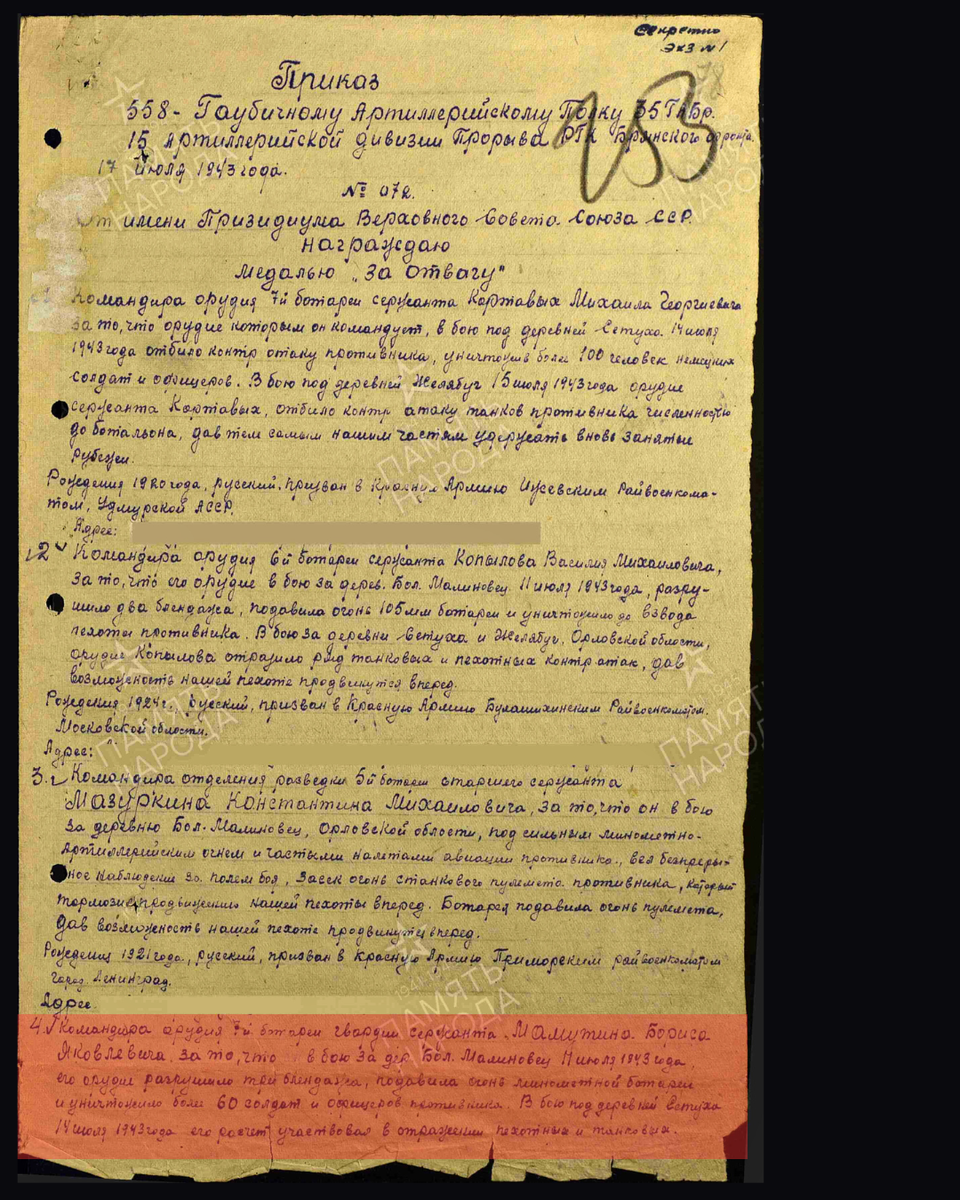 Секретно
Экз №1
78
Приказ
253
558- Гаубичному Артиллерийскому Полку 35 ГАБр.
15 Артиллерийской дивизии Прорыва РГК Брянского фронта.
17 июля 1943 года.
№ 072.
От имени Призидиума Верховного Совета Союза ССР.
награждаю
Медалью „За отвагу"
1. Командира орудия 7й ботареи сержанта Кортавых Михаила Георгиевича
за то, что орудие которым он командует, в бою под деревней Сетуха 14 июля
1943 года отбило контр отаку противника, уничтожив более 100 человек немецких
солдат и офицеров. В бою под деревней Желябуг 15 июля 1943 года орудие
сержанта Кортавых, отбило контр атаку танков противника численностью
до ботальона, дав тем самым нашим частям удержать вновь занятые
рубежи.
Рождения 1920 года, русский, призван в Красная Армию Ижевским Райвоенкома-
том, Удмурской АССР.
Адрес:
2 Командира орудия 6й ботареи сержанта Копылова Василия Михаиловича,
за то, что его орудие в бою за дерев. Бол. Малиновец 11 июля 1943 года, разру-
шило два блендажа, подавила огонь 105 мм ботареи и уничтожило до взвода
пехоты противника. В бою за деревни Сетуха и Желябуг, Орловской области,
орудие Копылова отразило ряд танковых и пехотных контр атак, дав
возможность нашей пехоте продвинутся вперед.
Рождения 1924 г. русский, призван в Красную Армию Булашихинским Райвоенкоматом.
Московской области.
Адрес:
3. Командира отделения разведки 5й ботареи старшего сержанта
Мазуркина Константина Михаиловича, за то, что он в бою
за деревню Бол. Малиновец, Орловской области, под сильным минометно-
артиллерийским огнем и частыми налетами авиации противника, вел безпрерыв-
ное наблюдение за полем боя, засек огонь станкового пулемета противника, который
тормозил продвижению нашей пехоты вперед. Ботарея подавила огонь пулемета,
дав возможность нашей пехоте продвинутся вперед.
Рождения 1921 года, русский, призван в Красную Армию Приморским райвоенкоматом
город Ленинград.
Адрес.
4. Командира орудия 7й ботареи гвардии сержанта Мамутина Бориса
Яковлевича за то, что в бою за дер. Бол. Малиновец 11 июля 1943 года,
его орудие разрушило три блендажа, подавила огонь минометной ботареи
и уничтожило более 60 солдат и офицеров противника. В бою под деревней Сетуха
14 июля 1943 года его расчет участвовал в отражении пехотных и танковых.
ПАМЯТЬ
НАРОДА